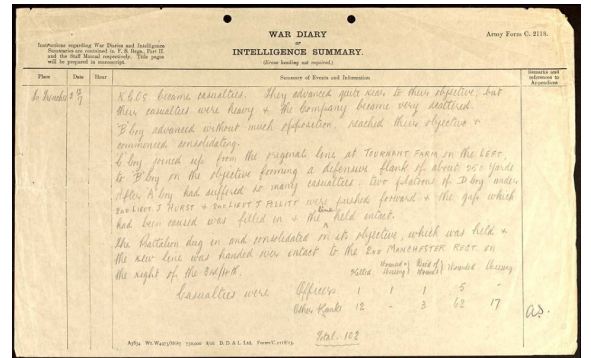 WAR DIARY
OF
INTELLIGENCE SUMMARY.
(Erase heading not required.)
Army Form C. 2118.
Instructions regarding War Diaries and Intelligence
Summaries are contained in F. S. Regs., Part II.
and the Staff Manual respectively. Title pages
will be prepared in manuscript.
Place
Date
Hour
Summary of Events and Information
Remarks and
references to
Appendices
In Trenches
became casualties. They advanced quite near to their objective, but
their casualties were heavy & the Company became very scattered.
'B' Coy advanced without much opposition, reached their objective &
commenced consolidating.
C Coy joined up from the original line at TOURNANT FARM on the LEFT,
to 'B' Coy on the objective forming a defensive flank of about 250 yards
After 'A' Coy had suffered so many casualties, two platoons of D Coy under
2nd LIEUT. J HURST & 2nd LIEUT J FOLLITT were pushed forward & the gap which
had been caused was filled in & the line held intact.
The Battalion dug in and consolidated on its objective, which was held &
the new line was handed over intact to the 2nd MANCHESTER REGT. on
the right of the
Killed
Wounded & Missing
Died of Wounds
Wounded
Missing
Casualties were Officers 1 1 1 5 -
Other Ranks 12 - 3 62 17
Total. 102
A5834 Wt. W4973/M687 750,000 8/16 D. D. & L. Ltd. Forms/C.2118/13.